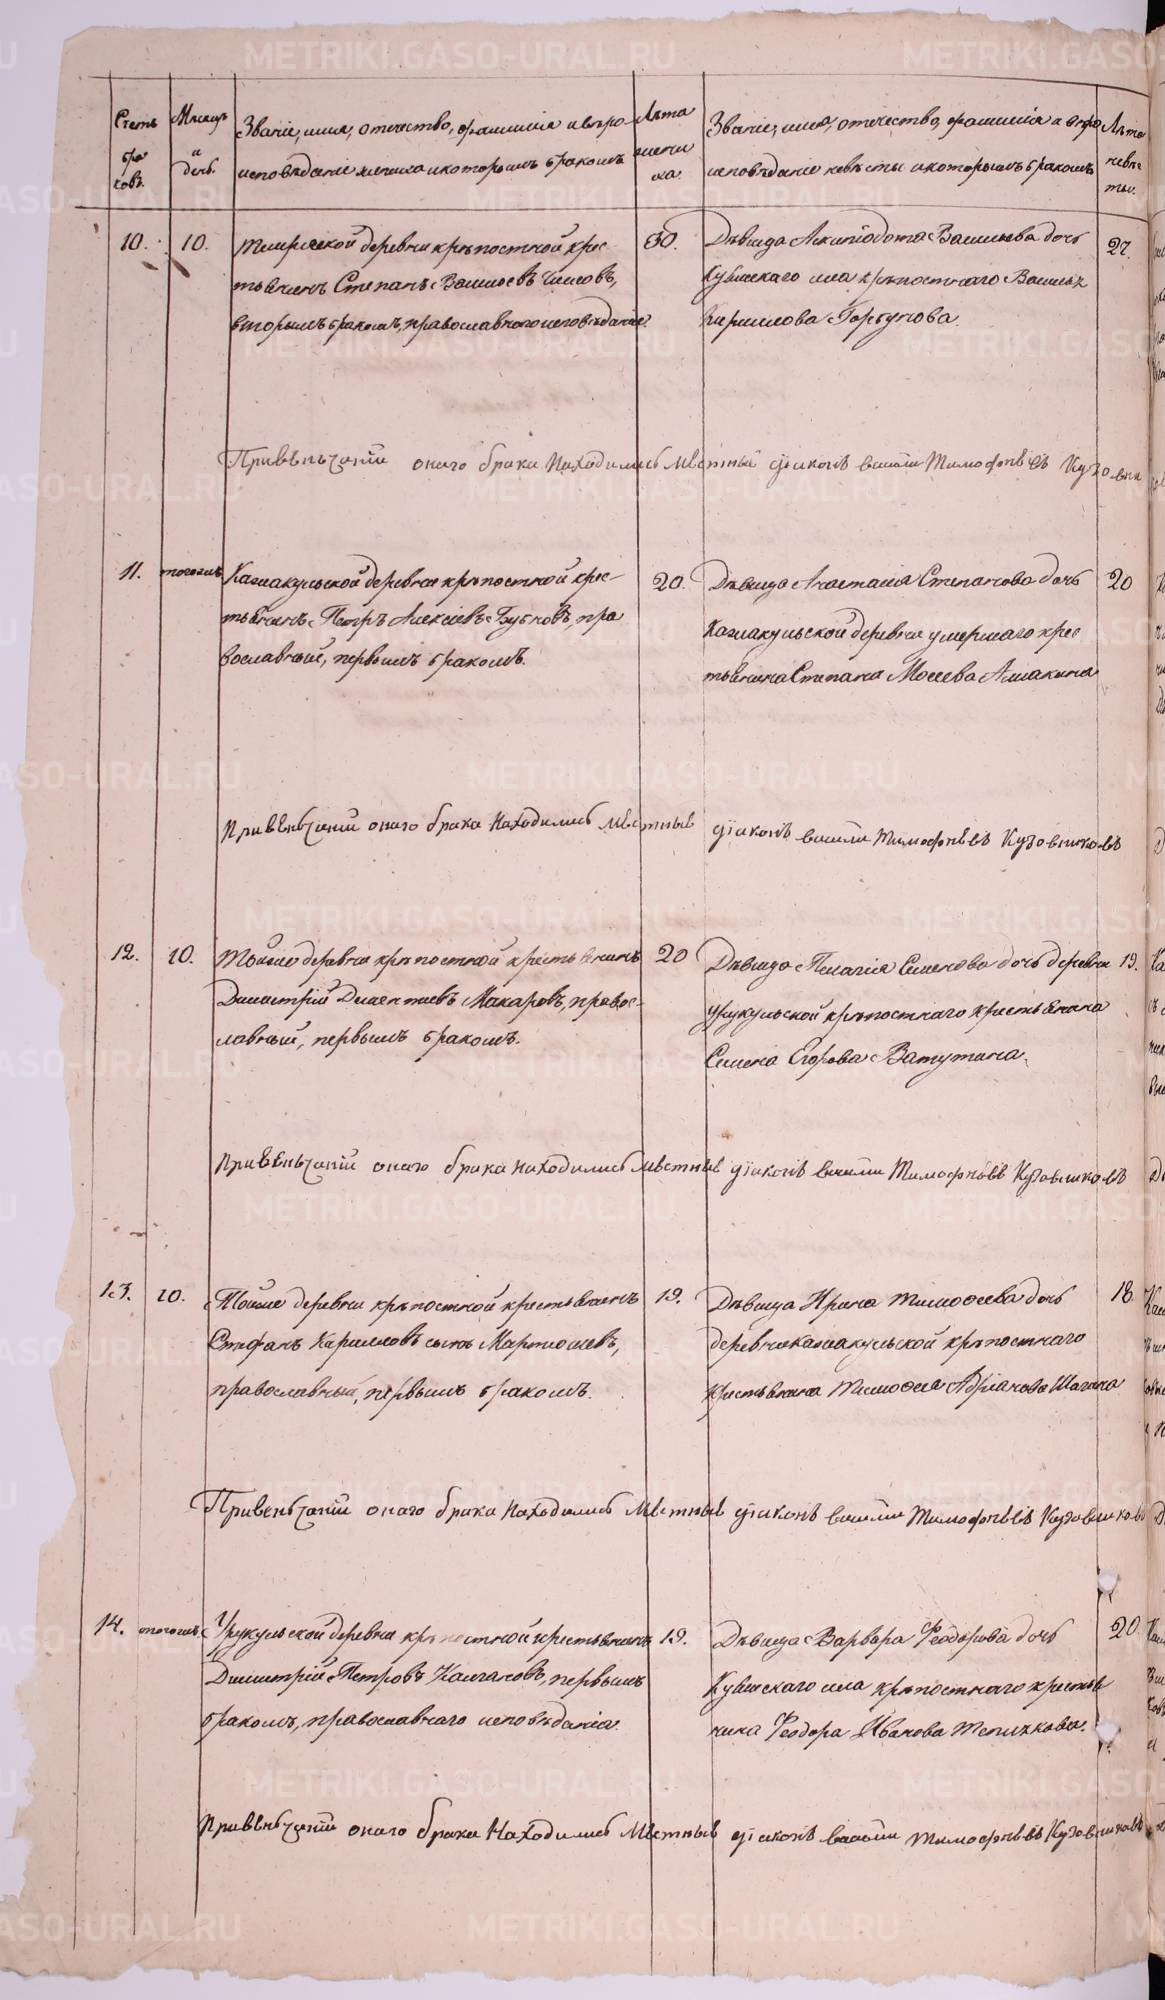 Счетъ браковъ.
Мѣсяцъ и день.
Званіе, имя, отечество, фамилія и вѣро
исповѣданіе жениха и которымъ бракомъ
Лѣта жениха.
Званіе, имя, отечество, фамилія и вѣро
исповѣданіе невѣсты и которымъ бракомъ
Лѣта невѣсты.
10. 10. деревни крѣпостной крес
тьянинъ Степанъ Васильевъ
вторымъ бракомъ, православнаго исповѣданія.
30.
Дѣвица Васильева дочь
села крѣпостнаго Василья
Кирилова Горбунова.
27.
Привѣньчаніи онаго брака Находились Мѣстный діаконъ васили Тимофѣевъ
11. тогожъ Каслакульской деревни крѣпостной крес-
тьянинъ Петръ Алексѣевъ Бубновъ, пра
вославный, первымъ бракомъ.
20.
Дѣвица Анастасія Степанова дочь
Каслакульской деревни умершаго крес
тьянина Степана Мосеева
20
Привѣньчаніи онаго брака Находились Мѣстныѣ діаконъ васили Тимофѣевъ Кузовниковъ
12. 10. Тойже деревни крѣпостной крестьянинъ
Димитрій Макаровъ, правос-
лавный, первымъ бракомъ.
20
Дѣвица Пелагія Семенова дочь деревни
Урукульской крѣпостнаго крестьянина
Семена Егорова Ватутина.
19.
Привѣньчаніи онаго брака находились Мѣстныѣ діаконъ васили Тимофѣевъ Кузовниковъ
13. 10. Тойже деревни крѣпостной крестьянинъ
Стефанъ Кириловъ сынъ
православный, первымъ бракомъ.
19.
Дѣвица Ирина Тимоѳеева дочь
деревни Каслакульской крѣпостнаго
крестьянина Тимоѳея Адріанова
18.
Привѣньчаніи онаго брака Находились Мѣстныѣ діаконъ васили Тимофѣевъ Кузовниковъ
14. тогожъ Урукульской деревни крѣпостной крестьянинъ
Димитрій Петровъ первымъ
бракомъ, православнаго исповѣданія.
19.
Дѣвица Варвара Ѳеодорова дочь
села крѣпостнаго крестья
нина Ѳеодора Иванова
20.
Привѣньчаніи онаго брака Находились Мѣстныѣ діаконъ васили Тимофѣевъ Кузовниковъ
METRIKI.GASO-URAL.RU